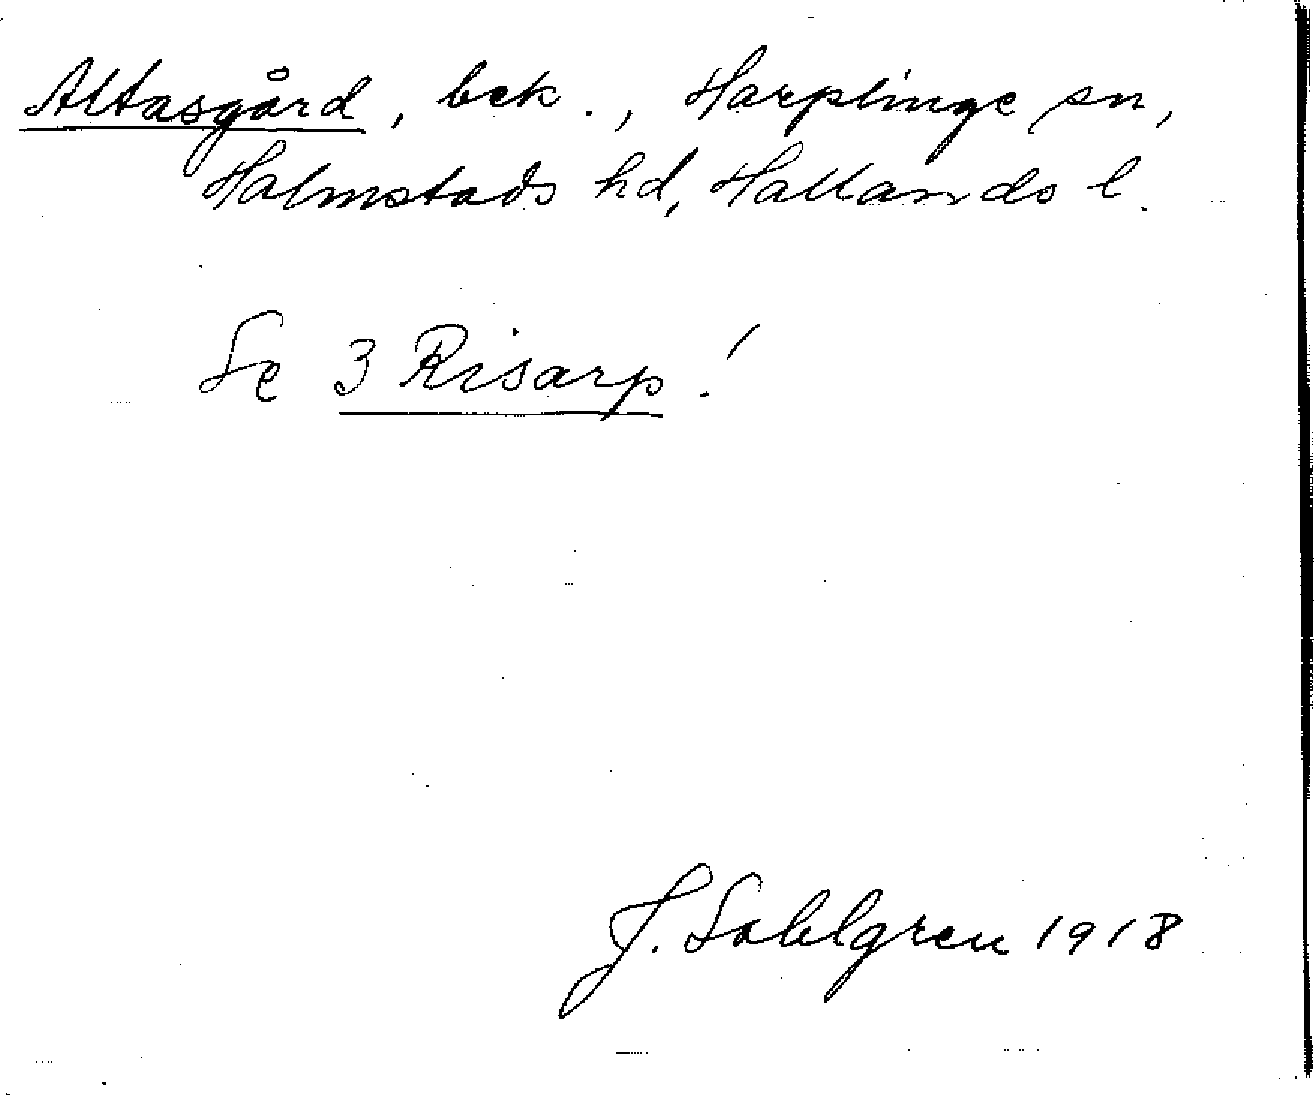 Altasgård, bek., Harplinge sn,
Halmstads hd, Hallands l.
Se 3 Risarp!
J. Sahlgren 1918